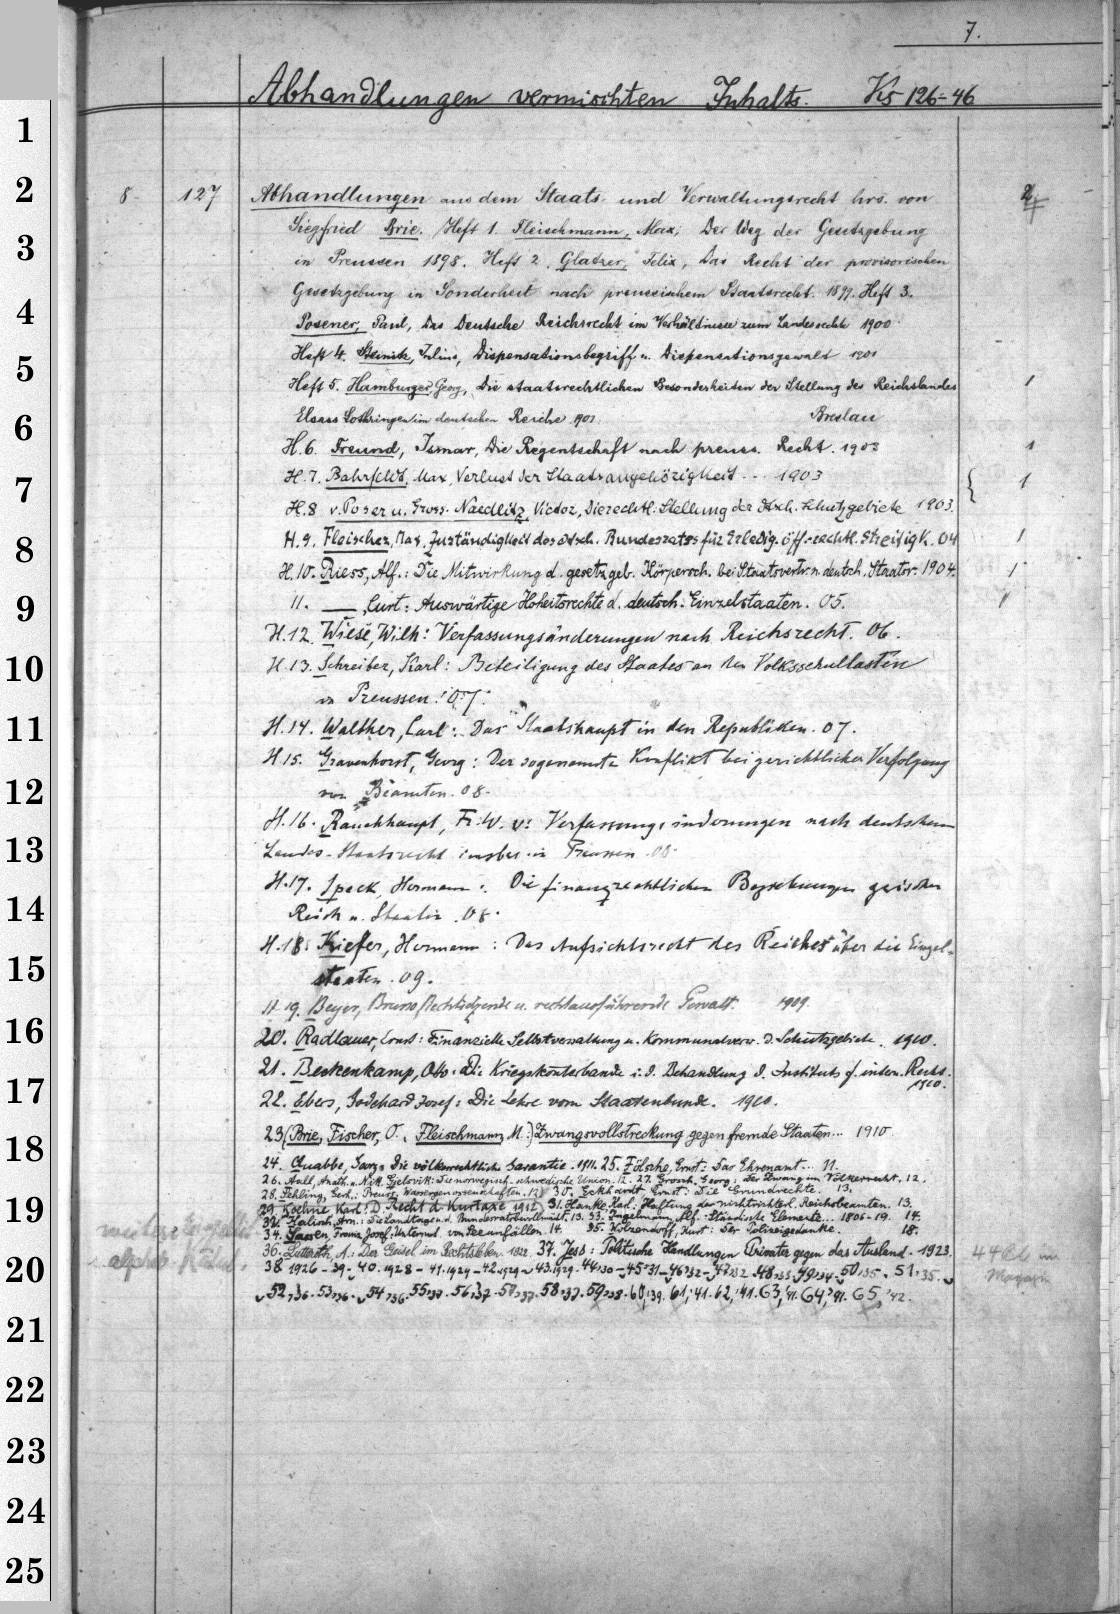 7.
Abhandlungen vermischten Inhalts. Ks 126-46
1
2
8 127 Abhandlungen aus dem Staats- und Verwaltungsrecht hrs. von
Siegfried Brie. Heft 1. Fleischmann, Max, Der Weg der Gesetzgebung
3
in Preussen 1898. Heft 2. Glatzer, Felix, Das Recht der provisorischen
Gesetzgebung in Sonderheit nach preussischem Staatsrecht. 1899. Heft 3.
4
Posener, Paul, Das Deutsche Reichsrecht im Verhältnisse zum Landesrechte 1900.
Heft 4. Steinitz, Julius, Dispensationsbegriff u. Dispensationsgewalt 1901
5
Heft 5. Hamburger, Georg, Die staatsrechtlichen Besonderheiten der Stellung des Reichslandes 1
Elsass Lothringen im deutschen Reiche. 1901. Breslau
6
H. 6. Freund, Ismar, Die Regentschaft nach preuss. Recht. 1903 1
H. 7. Bahrfeldt, Max, Verlust der Staatsangehörigkeit ... 1903 { 1
7
H. 8. v. Poser u. Gross-Naedlitz, Victor, Die rechtl. Stellung der dtsch. Schutzgebiete 1903.
H. 9. Fleischer, Max, Zuständigkeit des dtsch. Bundesrates für Erledig. öff.-rechtl. Streitigk. 04 1
8
H. 10. Riess, Alf.: Die Mitwirkung d. gesetzgeb. Körpersch. bei Staatsvertr. n. deutsch. Staatsr. 1904. 1
11. ___, Curt: Auswärtige Hoheitsrechte d. deutsch. Einzelstaaten. 05. 1
9
H. 12. Wiese, Wilh: Verfassungsänderungen nach Reichsrecht. 06.
H. 13. Schreiber, Karl: Beteiligung des Staates an den Volksschullasten
10
in Preussen. 07.
H. 14. Walther, Carl: Das Staatshaupt in den Republiken. 07.
11
H. 15. Gravenhorst, Georg: Der sogenannte Konflikt bei gerichtlicher Verfolgung
von Beamten. 08.
12
H. 16. Rauchhaupt, Fr. W. v: Verfassungsänderungen nach deutschem
Landes-Staatsrecht insbes. in Preussen. 08.
13
H. 17. Speck, Hermann: Die finanzrechtlichen Beziehungen zwischen
14
Reich u. Staaten. 08.
H. 18. Kiefer, Hermann: Das Aufsichtsrecht des Reiches über die Einzel-
15
staaten. 09.
H 19. Beyer, Bruno, Rechtsetzende u. rechtausführende Gewalt 1909.
16
20. Radlauer, Ernst: Finanzielle Selbstverwaltung u. Kommunalverw. d. Schutzgebiete. 1910.
21. Beckenkamp, Otto: Die Kriegskonterbande i. d. Behandlung d. Instituts f. intern. Recht. 1910.
17
22. Ebers, Godehard Josef: Die Lehre vom Staatenbunde. 1910.
23 (Brie, Fischer, O., Fleischmann, M.:) Zwangsvollstreckung gegen fremde Staaten... 1910.
18
24. Quabbe, Georg: Die völkerrechtliche Garantie. 1911. 25. Fölsche, Ernst: Das Ehrenamt... 11.
26. Aall, Anath. u. Nik. Gjelsvik: Die norwegisch-schwedische Union. 12. 27. Grosch, Georg: Der Zwang im Völkerrecht. 12.
28. Fehling, Gerh.: Preuss. Wassergenossenschaften. 12) 30. Eckhardt, Ernst: Die Grundrechte. 13.
19
29. Koehne, Karl: D. Recht d. Kurtaxe 1912) 31. Hanke, Karl. Haftung der nichtrichterl. Reichsbeamten. 13.
32. Kalisch, Arn.: Die Landtagen d. 13. 33. Pagelmann, Alf.: Ständische Elemente... 1806-19. 14.
34. Sassen, Franz Josef, von Seeunfällen. 14. 35. Wolzendorff, Kurt: Der Polizeigedanke. 18.
36. Lutteroth, A.: Der Geisel im Rechtsleben. 1922. 37. Jess: Politische Handlungen Privater gegen das Ausland. 1923.
20
38 1926 - 39 - 40. 1928 - 41. 1929 - 42. 1929 - 43. 1929. 44. 30 - 45. 31 - 46. 32 - 47. 32. 48. 33. 49. 34. 50. 35. 51. 35.
52. 36. 53. 36. 54. 36. 55. 37. 56. 37. 57. 37. 58. 37. 59. 38. 60. 39. 61. 41. 62. 41. 63. 41. 64. 41. 65. 42.
Magazin
21
22
23
24
25